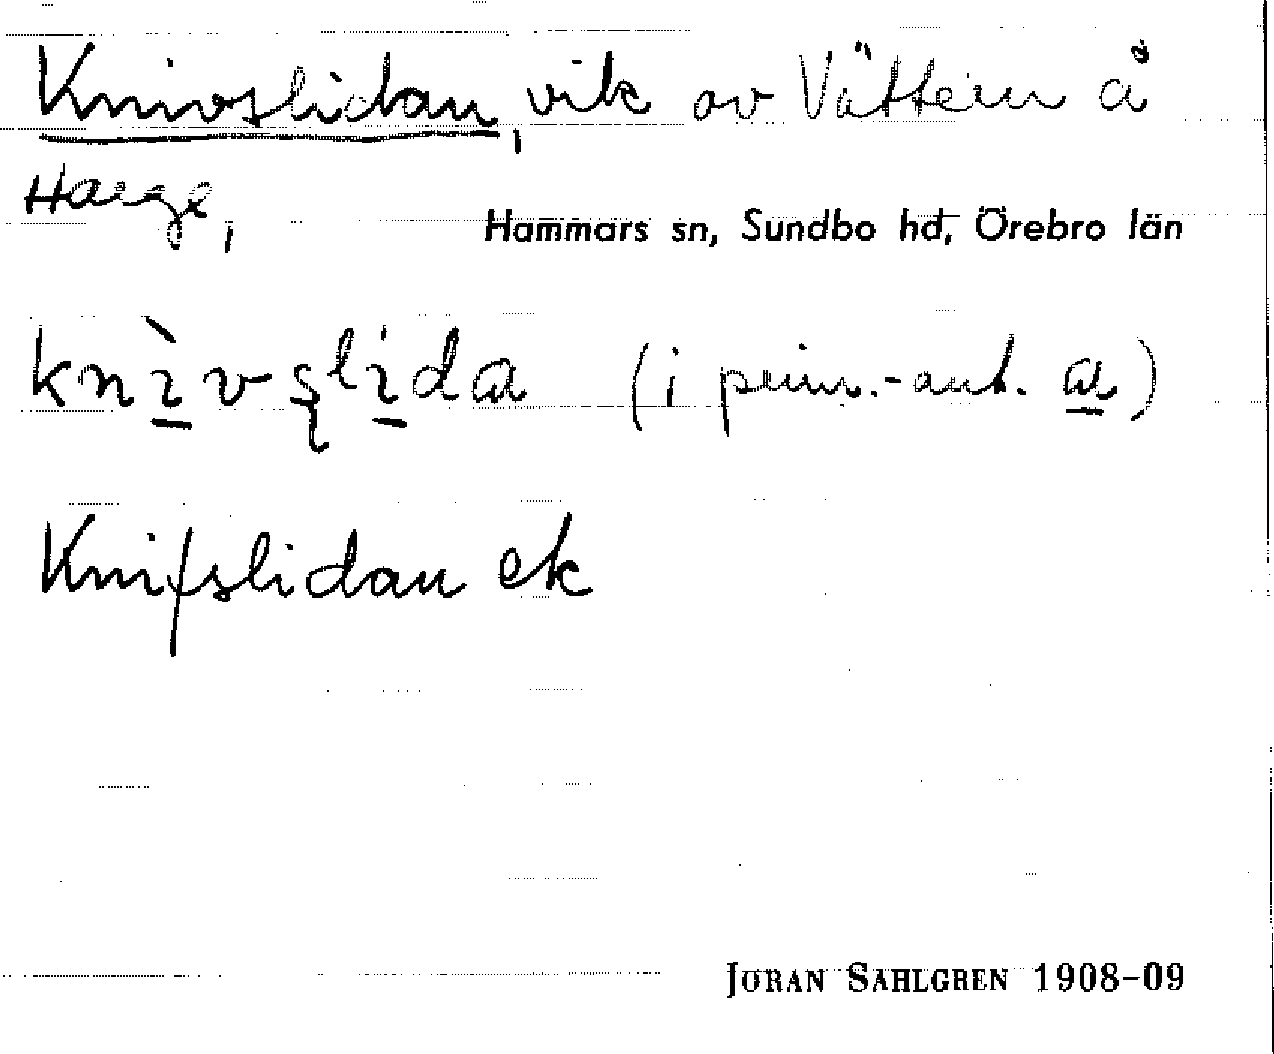 Knivslidan, vik av Vättern å
Harge,
Hammars sn, Sundbo hd, Örebro län
knìvslida (i prim.-ant. a)
Knifslidan ek
JÖRAN SAHLGREN 1908–09